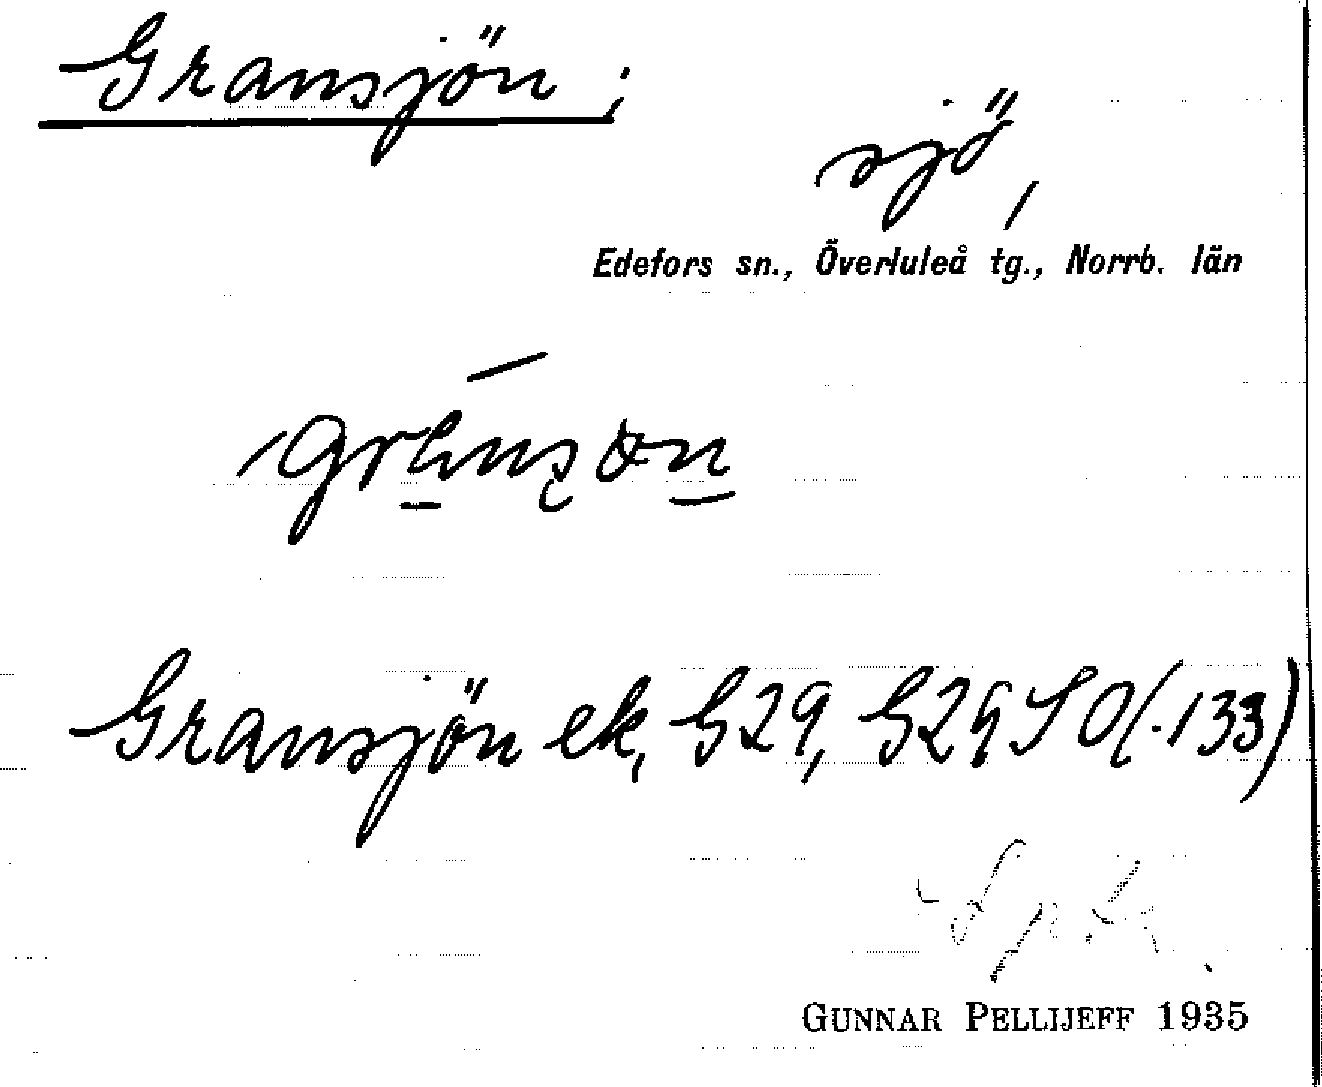 Gransjön;
sjö,
Edefors sn., Överluleå tg., Norrb. län
Gransjön ek, G29, G29 SO (.133)
GUNNAR PELLIJEFF 1935